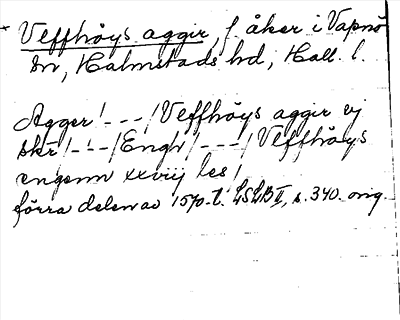 * Veffhöys agger, f. åker i Vapnö
sn, Halmstads hd, Hall. l.
Agger! - - - / Veffhöys agger vj
skr / - - - / Engh / - - - / Veffhöys
engenn xxviij les /
förra delen av 1570-t. LSLB II, s. 340. orig.